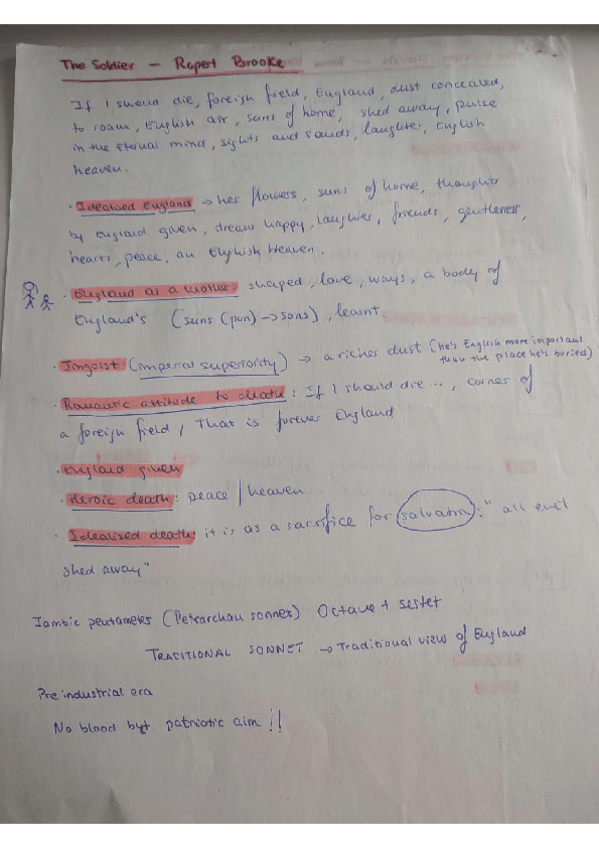 The Soldier — Rupert Brooke
If I should die, foreign field, England, dust concealed,
to roam, English air, suns of home, shed away, pulse
in the Eternal mind, sights and sounds, laughter, English
heaven.
· Idealised England → her flowers, suns of home, thoughts
by England given, dreams happy, laughter, friends, gentleness,
hearts, peace, an English Heaven.
· England as a mother: shaped, love, ways, a body of
England's (suns (pun) → sons), learnt
· Jingoist (imperial superiority) → a richer dust (he's English more important
than the place he's buried)
· Romantic attitude to death: If I should die ..., corner of
a foreign field, that is forever England
· England given
· Heroic death: peace / heaven
· Idealised death: it is as a sacrifice for salvation: "all evil
shed away"
Iambic pentameter (Petrarchan sonnet) Octave + sestet
TRADITIONAL SONNET → Traditional view of England
Pre industrial era
No blood but patriotic aim !!